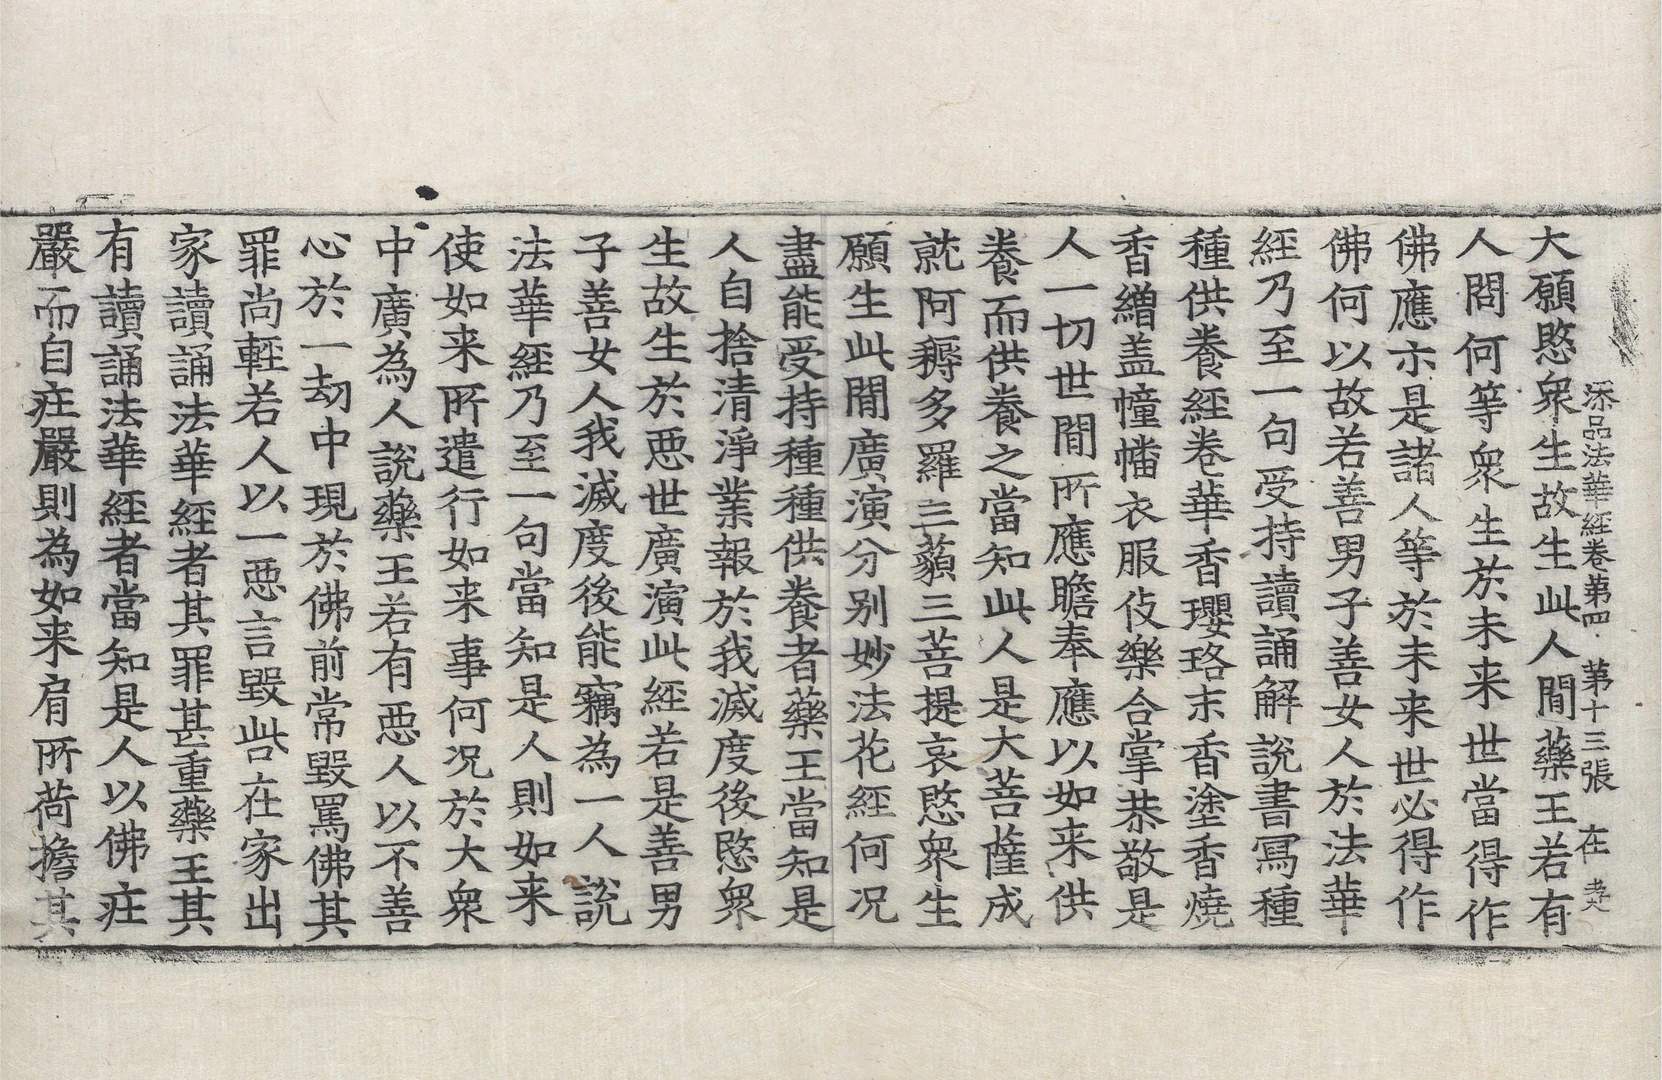 深品法華經卷第四 第十三張 在
大願愍衆生故生此人間藥王若有
人問何等衆生於未来世當得作
佛應示是諸人等於未来世必得作
佛何以故若善男子善女人於法華
經乃至一句受持讀誦解說書寫種
種供養經卷華香瓔珞末香塗香燒
香繒盖幢幡衣服伎樂合掌恭敬是
人一切世間所應瞻奉應以如来供
養而供養之當知此人是大菩薩成
就阿耨多羅三藐三菩提哀愍衆生
願生此間廣演分别妙法花經何况
盡能受持種種供養者藥王當知是
人自捨清淨業報於我滅度後愍衆
生故生於悪世廣演此經若是善男
子善女人我滅度後能竊為一人說
法華經乃至一句當知是人則如来
使如来所遣行如来事何况於大衆
中廣為人說藥王若有悪人以不善
心於一劫中現於佛前常毀罵佛其
罪尚輕若人以一悪言毀呰在家出
家讀誦法華經者其罪甚重藥王其
有讀誦法華經者當知是人以佛疘
嚴而自疘嚴則為如来肩所荷擔其